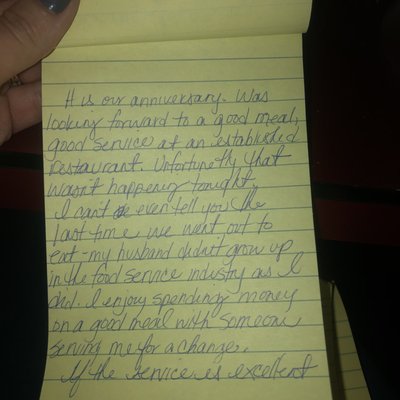 It is our anniversary. Was
looking forward to a good meal,
good service at an established
restaurant. Unfortunetly that
wasn't happening tonight
I can't even tell you the
last time we went out to
eat - my husband didn't grow up
in the food service industry as I
did. I enjoy spending money
on a good meal with someone
serving me for a change.
If the service is excellent